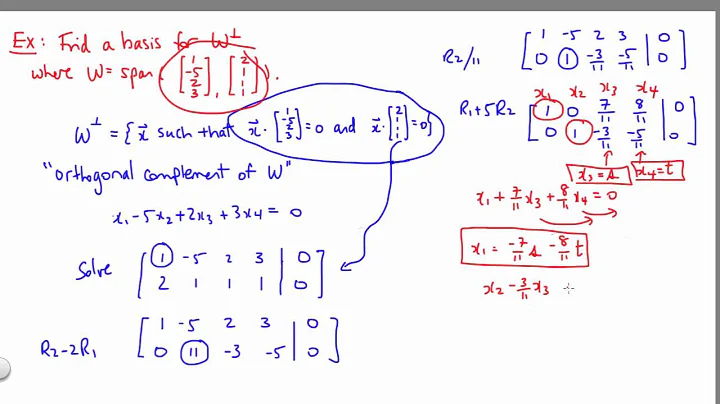 Ex: Find a basis for W⊥
where W = span { [1 -5 2 3], [2 1 1 1] }.
W⊥ = { x⃗ such that x⃗ · [1 -5 2 3] = 0 and x⃗ · [2 1 1 1] = 0 }
"orthogonal complement of W"
x1 - 5x2 + 2x3 + 3x4 = 0
Solve [ 1 -5 2 3 | 0 ]
[ 2 1 1 1 | 0 ]
[ 1 -5 2 3 | 0 ]
R2-2R1 [ 0 11 -3 -5 | 0 ]
[ 1 -5 2 3 | 0 ]
R2/11 [ 0 1 -3/11 -5/11 | 0 ]
x1 x2 x3 x4
R1+5R2 [ 1 0 7/11 8/11 | 0 ]
[ 0 1 -3/11 -5/11 | 0 ]
x3 = s x4 = t
x1 + 7/11 x3 + 8/11 x4 = 0
x1 = -7/11 s - 8/11 t
x2 - 3/11 x3